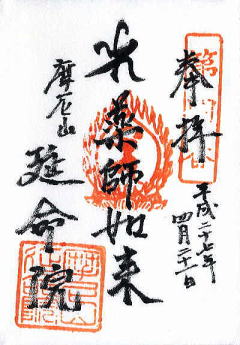 奉拝
平成二十七年
四月二十一日
光薬師如来
摩尼山
延命院